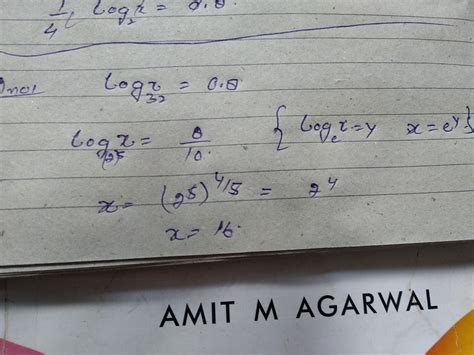 1/4 log₂x = 0.8
log₃₂x = 0.8
log₍₂⁵₎x = 8/10 { logₑx = y x = eʸ }
x = (2⁵)^4/5 = 2⁴
x = 16.
AMIT M AGARWAL